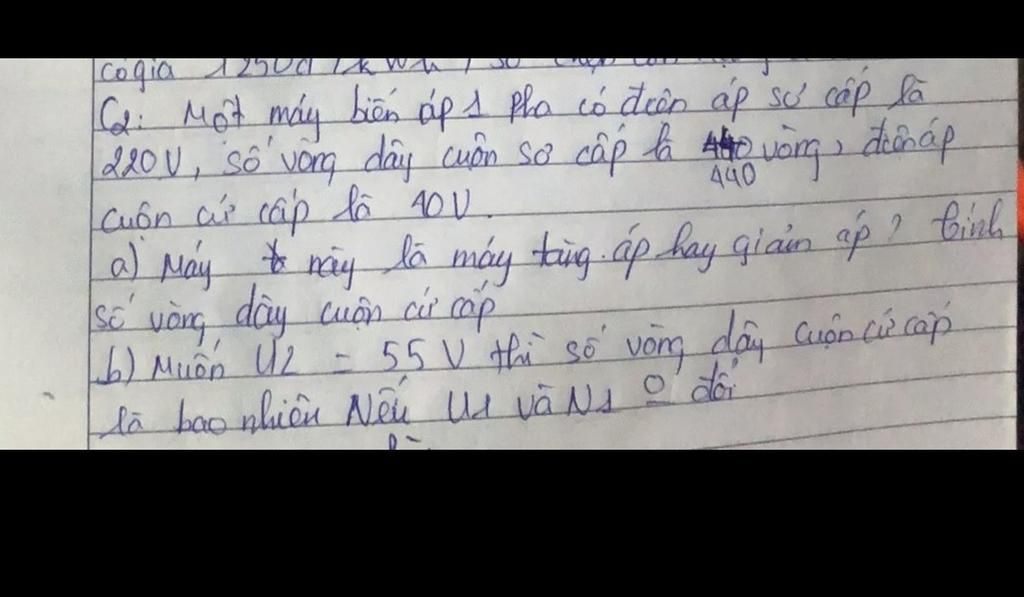 có giá 1250đ/kWh, số
C2: Một máy biến áp 1 pha có điện áp sơ cấp là
220V, số vòng dây cuộn sơ cấp là 440 vòng, điện áp
440
cuộn cứ cấp là 10V.
a) Máy này là máy tăng áp hay giảm áp? tính
số vòng dây cuộn cứ cấp
b) Muốn U2 = 55V thì số vòng dây cuộn cứ cấp
là bao nhiên Nếu U1 và N1 O đổi